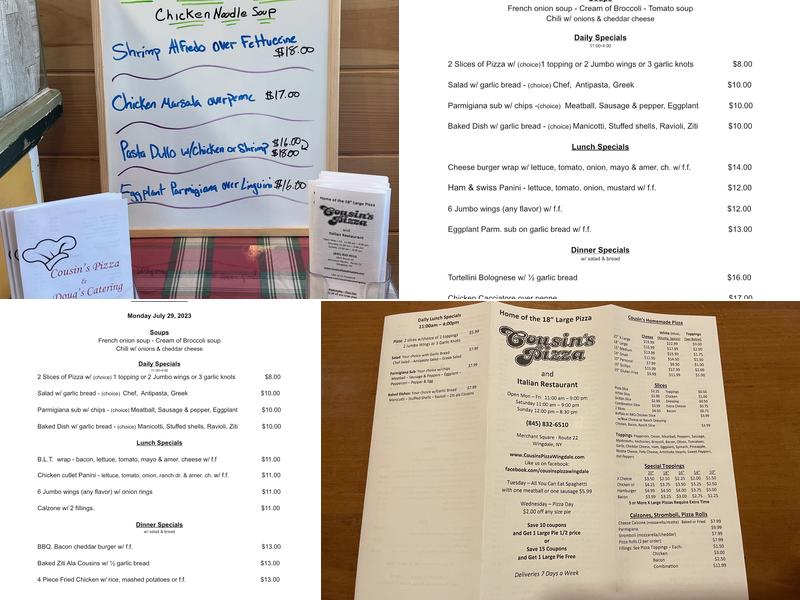 Chicken Noodle Soup
Shrimp Alfredo over Fettuccine
$18.00
Chicken Marsala over penne $17.00
Pasta Dullo w/Chicken or Shrimp $16.00
$18.00
Eggplant Parmigiana over Linguini $16.00
Cousin's Pizza
&
Doug's Catering
Home of the 18" Large Pizza
Cousin's
Pizza
and
Italian Restaurant
Soups
French onion soup - Cream of Broccoli - Tomato soup
Chili w/ onions & cheddar cheese
Daily Specials
11:00-4:00
2 Slices of Pizza w/ (choice)1 topping or 2 Jumbo wings or 3 garlic knots $8.00
Salad w/ garlic bread - (choice) Chef, Antipasta, Greek $10.00
Parmigiana sub w/ chips -(choice) Meatball, Sausage & pepper, Eggplant $10.00
Baked Dish w/ garlic bread - (choice) Manicotti, Stuffed shells, Ravioli, Ziti $10.00
Lunch Specials
Cheese burger wrap w/ lettuce, tomato, onion, mayo & amer. ch. w/ f.f. $14.00
Ham & swiss Panini - lettuce, tomato, onion, mustard w/ f.f. $12.00
6 Jumbo wings (any flavor) w/ f.f. $12.00
Eggplant Parm. sub on garlic bread w/ f.f. $13.00
Dinner Specials
w/ salad & bread
Tortellini Bolognese w/ ½ garlic bread $16.00
Chicken Cacciatore over penne $17.00
Monday July 29, 2023
Soups
French onion soup - Cream of Broccoli soup
Chili w/ onions & cheddar cheese
Daily Specials
11:00-4:00
2 Slices of Pizza w/ (choice) 1 topping or 2 Jumbo wings or 3 garlic knots $8.00
Salad w/ garlic bread - (choice) Chef, Antipasta, Greek $10.00
Parmigiana sub w/ chips - (choice) Meatball, Sausage & pepper, Eggplant $10.00
Baked Dish w/ garlic bread - (choice) Manicotti, Stuffed shells, Ravioli, Ziti $10.00
Lunch Specials
B.L.T. wrap - bacon, lettuce, tomato, mayo & amer. cheese w/ f.f $11.00
Chicken cutlet Panini - lettuce, tomato, onion, ranch dr. & amer. ch. w/ f.f. $11.00
6 Jumbo wings (any flavor) w/ onion rings $11.00
Calzone w/ 2 fillings. $11.00
Dinner Specials
w/ salad & bread
BBQ. Bacon cheddar burger w/ f.f. $13.00
Baked Ziti Ala Cousins w/ ½ garlic bread $13.00
4 Piece Fried Chicken w/ rice, mashed potatoes or f.f. $13.00
Daily Lunch Specials
11:00am – 4:00pm
Pizza: 2 slices w/choice of 2 toppings $5.99
2 Jumbo Wings or 3 Garlic Knots
Salad: Your choice with Garlic Bread $7.99
Chef Salad – Antipasto Salad – Greek Salad
Parmigiana Sub: Your choice w/chips $7.99
Meatball – Sausage & Peppers – Eggplant –
Pepperoni – Pepper & Egg
Baked Dishes: Your choice w/Garlic Bread $7.99
Manicotti – Stuffed Shells – Ravioli – Ziti ala Cousins
Home of the 18" Large Pizza
Cousin's
Pizza
and
Italian Restaurant
Open Mon – Fri 11:00 am – 9:00 pm
Saturday 11:00am – 9:00pm
Sunday 12:00 pm – 8:30 pm
(845) 832-6510
Merchant Square · Route 22
Wingdale, NY
www.CousinsPizzaWingdale.com
Like us on facebook:
facebook.com/cousinspizzawingdale
Tuesday – All You Can Eat Spaghetti
with one meatball or one sausage $5.99
Wednesday – Pizza Day
$2.00 off any size pie
Save 10 coupons
and Get 1 Large Pie 1/2 price
or
Save 15 Coupons
and Get 1 Large Pie Free
Deliveries 7 Days a Week
Cousin's Homemade Pizza
Cheese
Toppings
Slices
Special Toppings
20" 18" 16" 14" 12"
5 or More X Large Pizzas Require Extra Time
Calzones, Stromboli, Pizza Rolls
Cheese Calzone (mozzarella/ricotta) Baked or Fried $7.99
Parmigiana $9.99
Stromboli (mozzarella/cheddar) $7.99
Pizza Rolls (2 per order) $7.99
Fillings: See Pizza Toppings – Each: $1.50
Chicken $3.50
Bacon $2.50
Combination $12.99